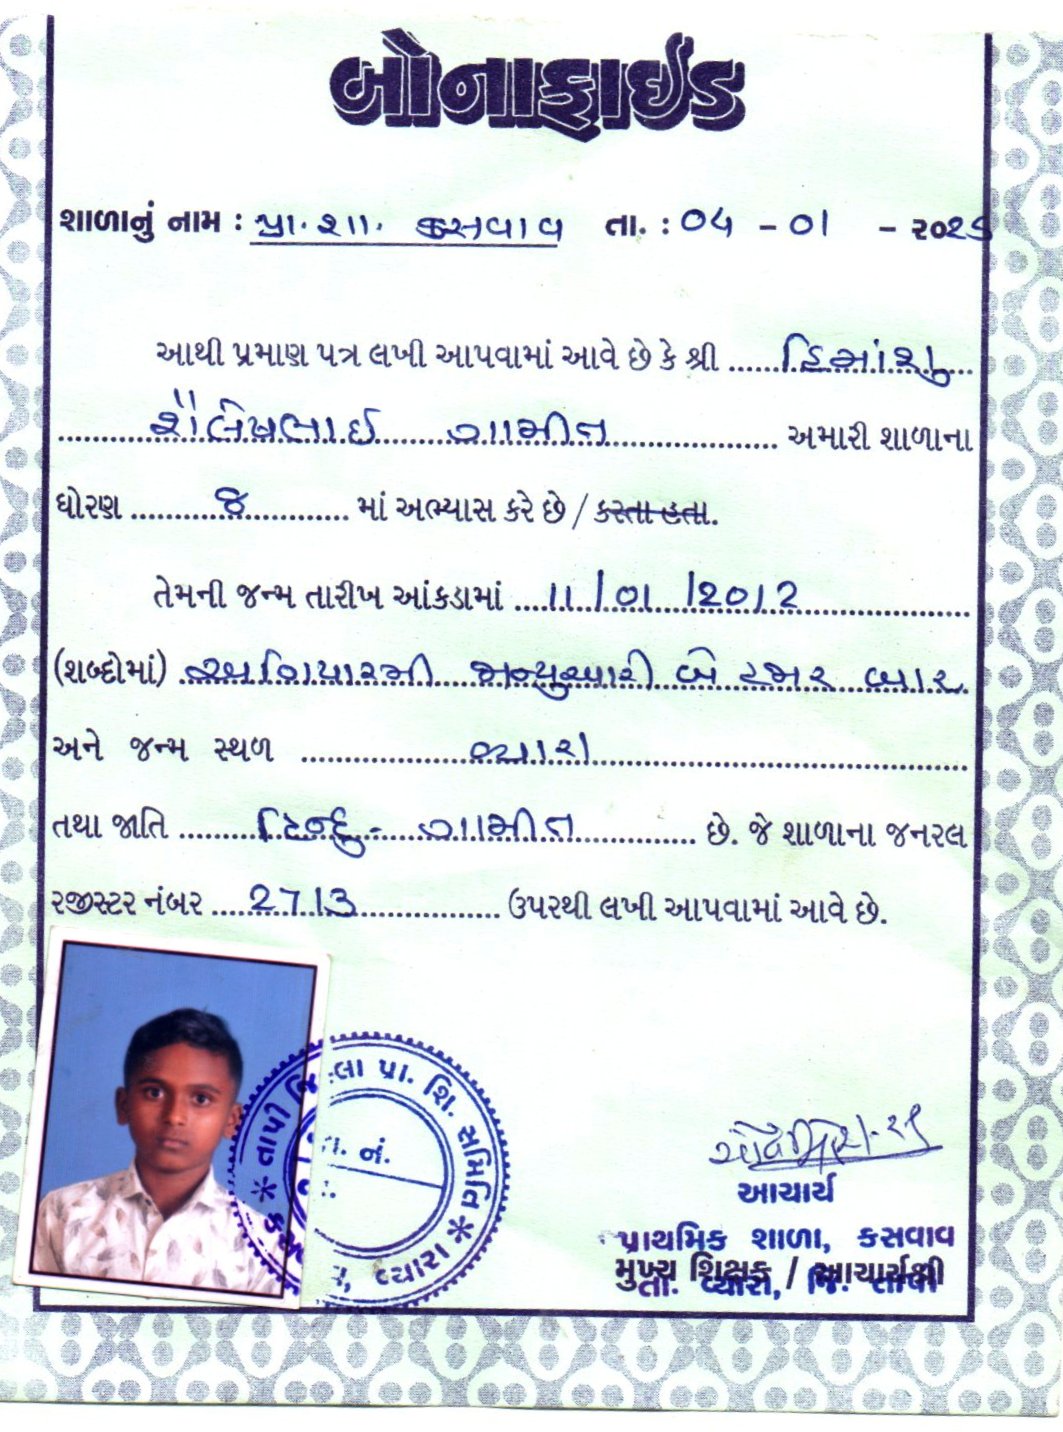 બોનાફાઈડ
શાળાનું નામ : પ્રા. શા. કસવાવ તા. : 04 - 01 - ૨૦25
આથી પ્રમાણ પત્ર લખી આપવામાં આવે છે કે શ્રી હિમાંશુ
શૈલેષભાઈ ગામીત અમારી શાળાના
ધોરણ ૪ માં અભ્યાસ કરે છે / કરતા હતા.
તેમની જન્મ તારીખ આંકડામાં 11/01/2012
(શબ્દોમાં) અગિયારમી જાન્યુઆરી બે હજાર બાર
અને જન્મ સ્થળ વ્યારા
તથા જાતિ હિન્દુ - ગામીત છે. જે શાળાના જનરલ
રજીસ્ટર નંબર 2713 ઉપરથી લખી આપવામાં આવે છે.
તાપી લા પ્રા. શિ. સમિતિ
નં.
વ્યારા
આચાર્ય
પ્રાથમિક શાળા, કસવાવ
મુખ્ય શિક્ષક / આચાર્યશ્રી
તા. વ્યારા, જિ. તાપી